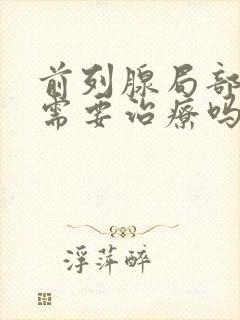 前列腺局部
需要治疗吗
浮萍醉